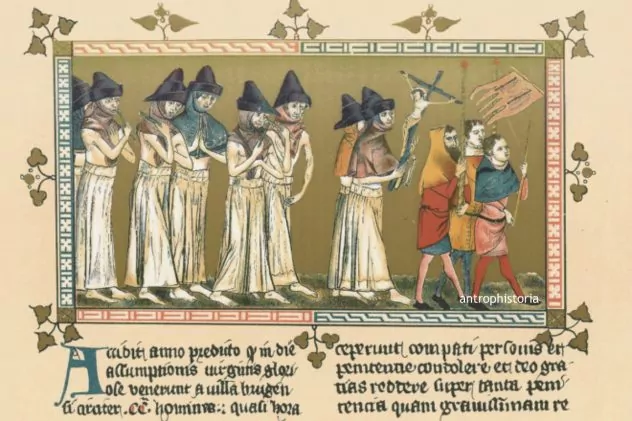 antrophistoria
Accidit anno predicto q in die
assumptionis virginis glori
ose venerunt a villa brugen
si circiter .CC. homines: quasi hora
ceperunt compati personis et
penitentie condolere et deo gra
tias reddere super tanta peni
tencia quam gravissimam re